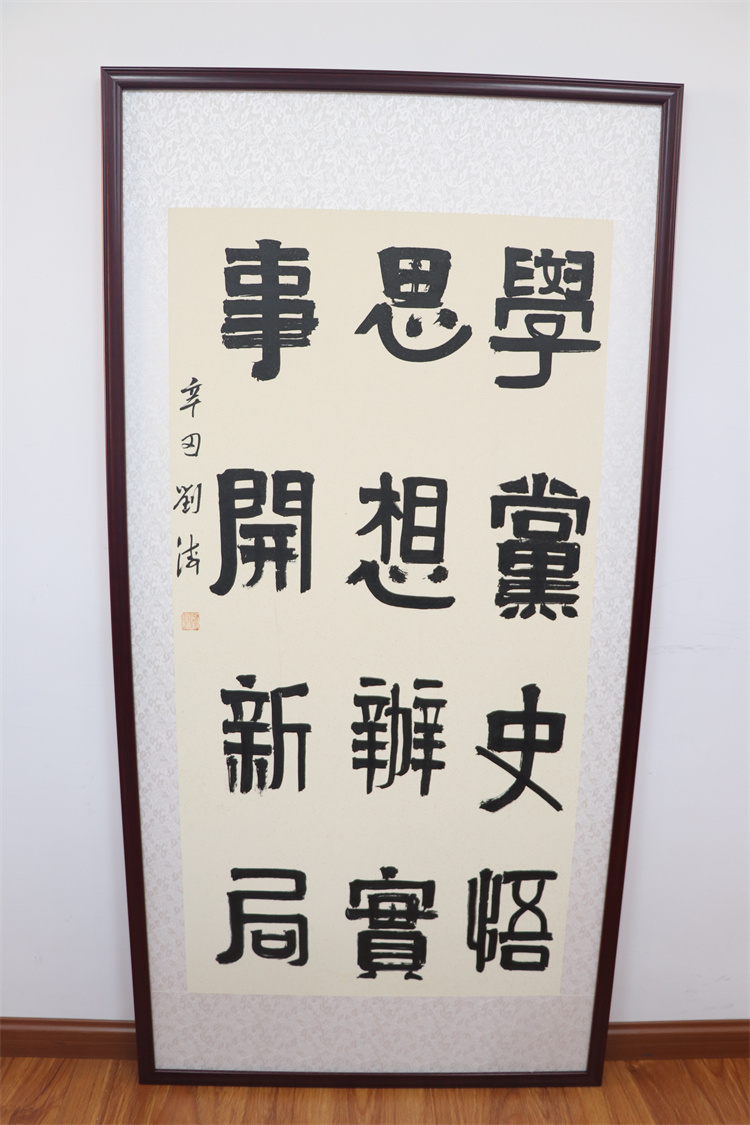 學黨史悟
思想辦實
事開新局
辛丑劉濤